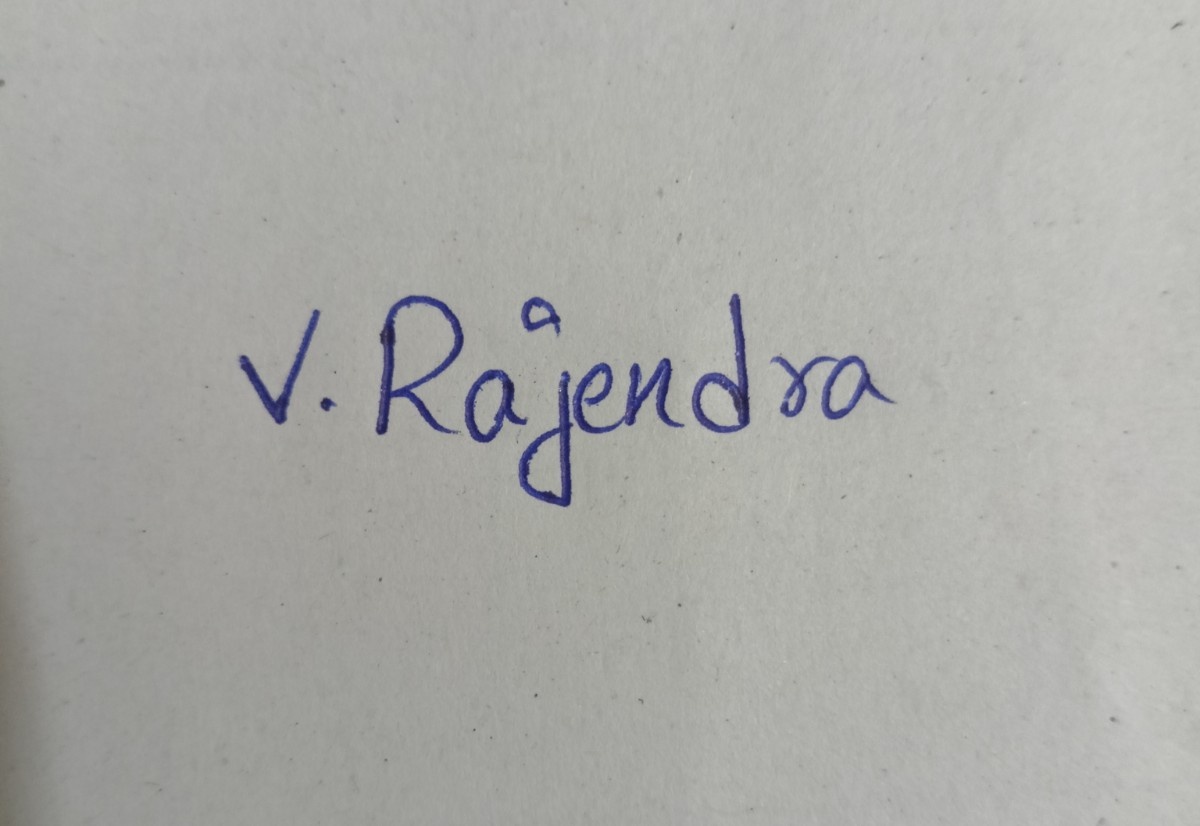 V. Rajendra